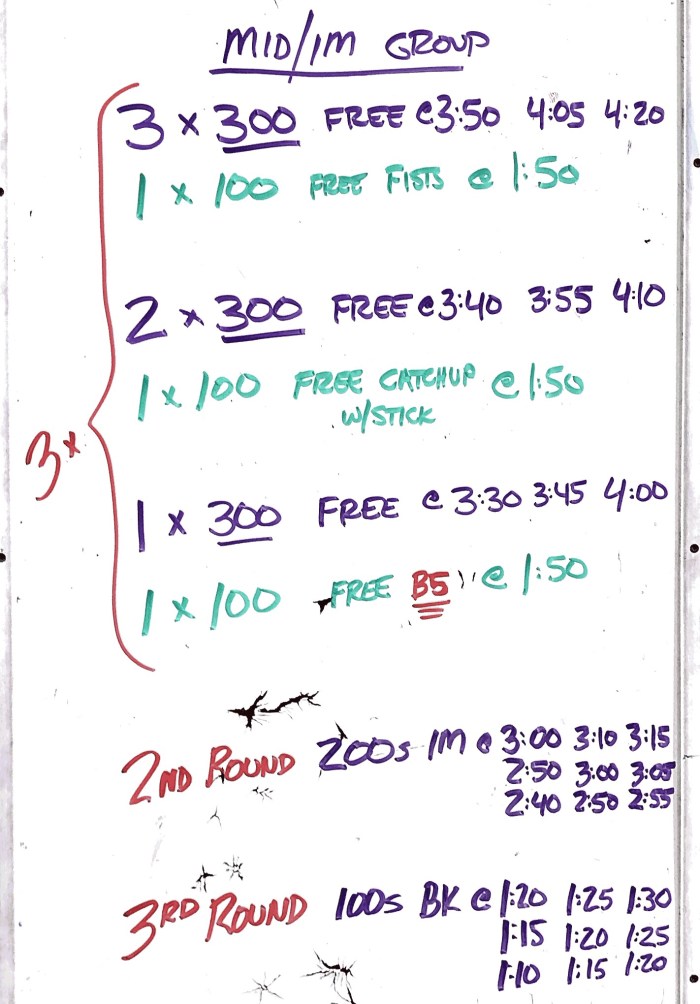 MID/IM GROUP
3 x 300 FREE @ 3:50 4:05 4:20
1 x 100 FREE FISTS @ 1:50
2 x 300 FREE @ 3:40 3:55 4:10
1 x 100 FREE CATCHUP @ 1:50
W/STICK
3x
1 x 300 FREE @ 3:30 3:45 4:00
1 x 100 FREE B5 @ 1:50
2ND ROUND 200s IM @ 3:00 3:10 3:15
2:50 3:00 3:05
2:40 2:50 2:55
3RD ROUND 100s BK @ 1:20 1:25 1:30
1:15 1:20 1:25
1:10 1:15 1:20